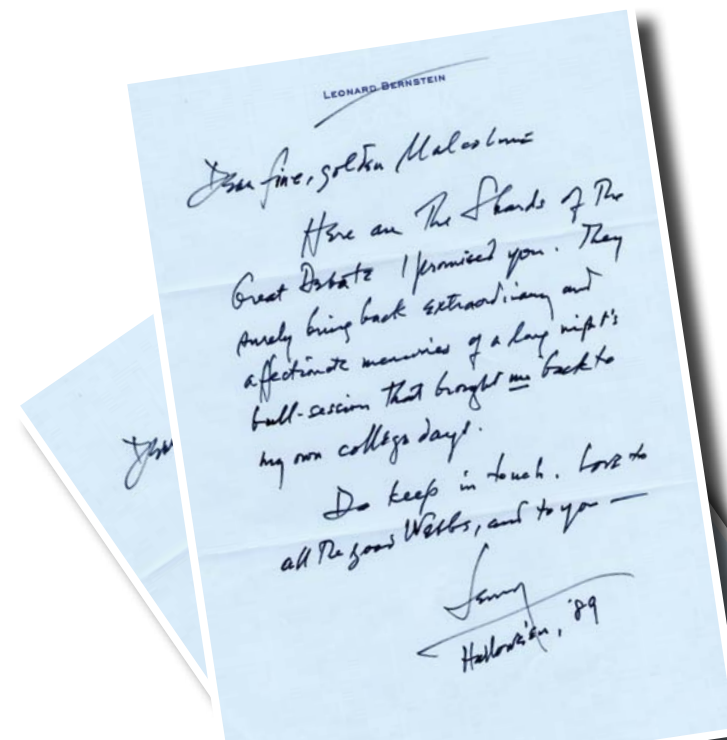 LEONARD BERNSTEIN
Dear fine, golden Malcolm
Here are The Shards of The
Great Debate I promised you. They
surely bring back extraordinary and
affectionate memories of a long night's
bull-session that brought me back to
my own college days.
Do keep in touch. Love to
all the good Webbs, and to you —
Lenny
Hallowe'en, '89
Dear